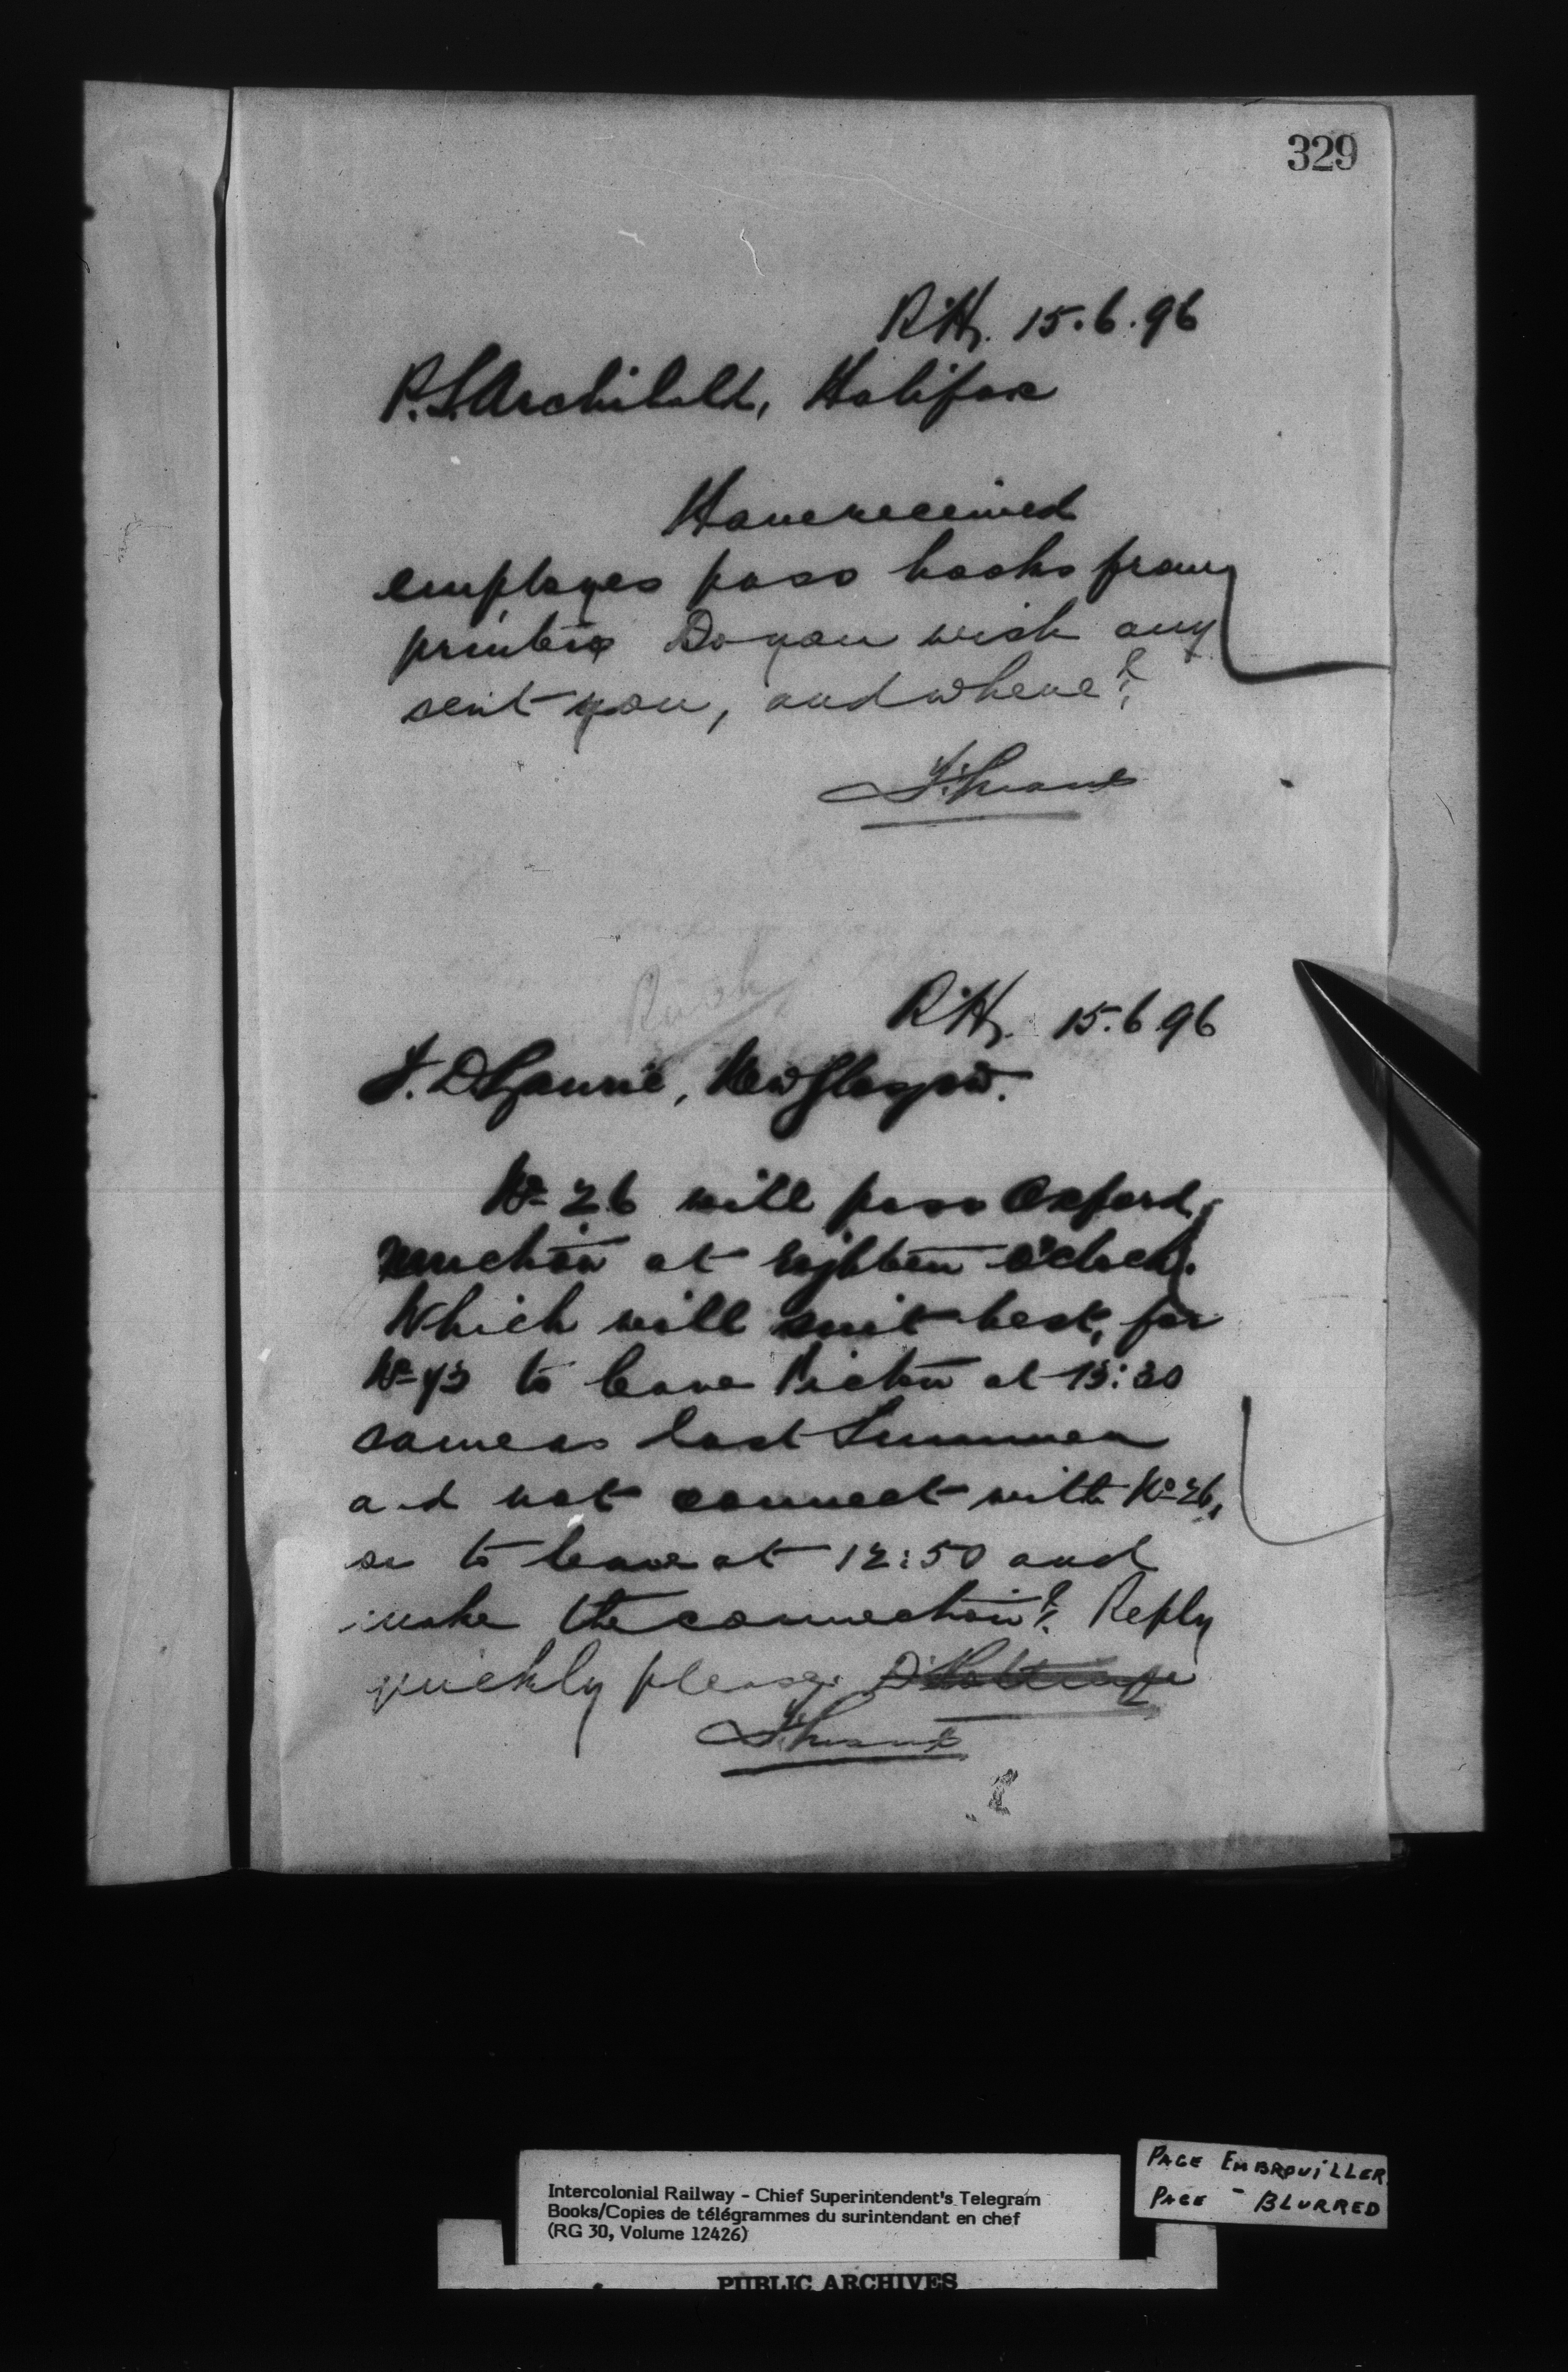 329
R'Hy. 15.6.96
P.S. Archibald, Halifax
Have received
employes pass books from
printers Do you wish any
sent you, and where?
Rush
R'Hy. 15.6 96
J. D. Laurie, New Glasgow.
No 26 will pass Oxford
Junction at eighteen o'clock.
Which will suit best, for
No to leave Pictou at 13:30
same as last Summer
and not connect with No 26,
or to leave at 12:50 and
make the connection? Reply
quickly please. D. Pottinger
Intercolonial Railway - Chief Superintendent's Telegram
Books/Copies de télégrammes du surintendant en chef
(RG 30, Volume 12426)
PAGE EMBROUILLER
PAGE - BLURRED
PUBLIC ARCHIVES